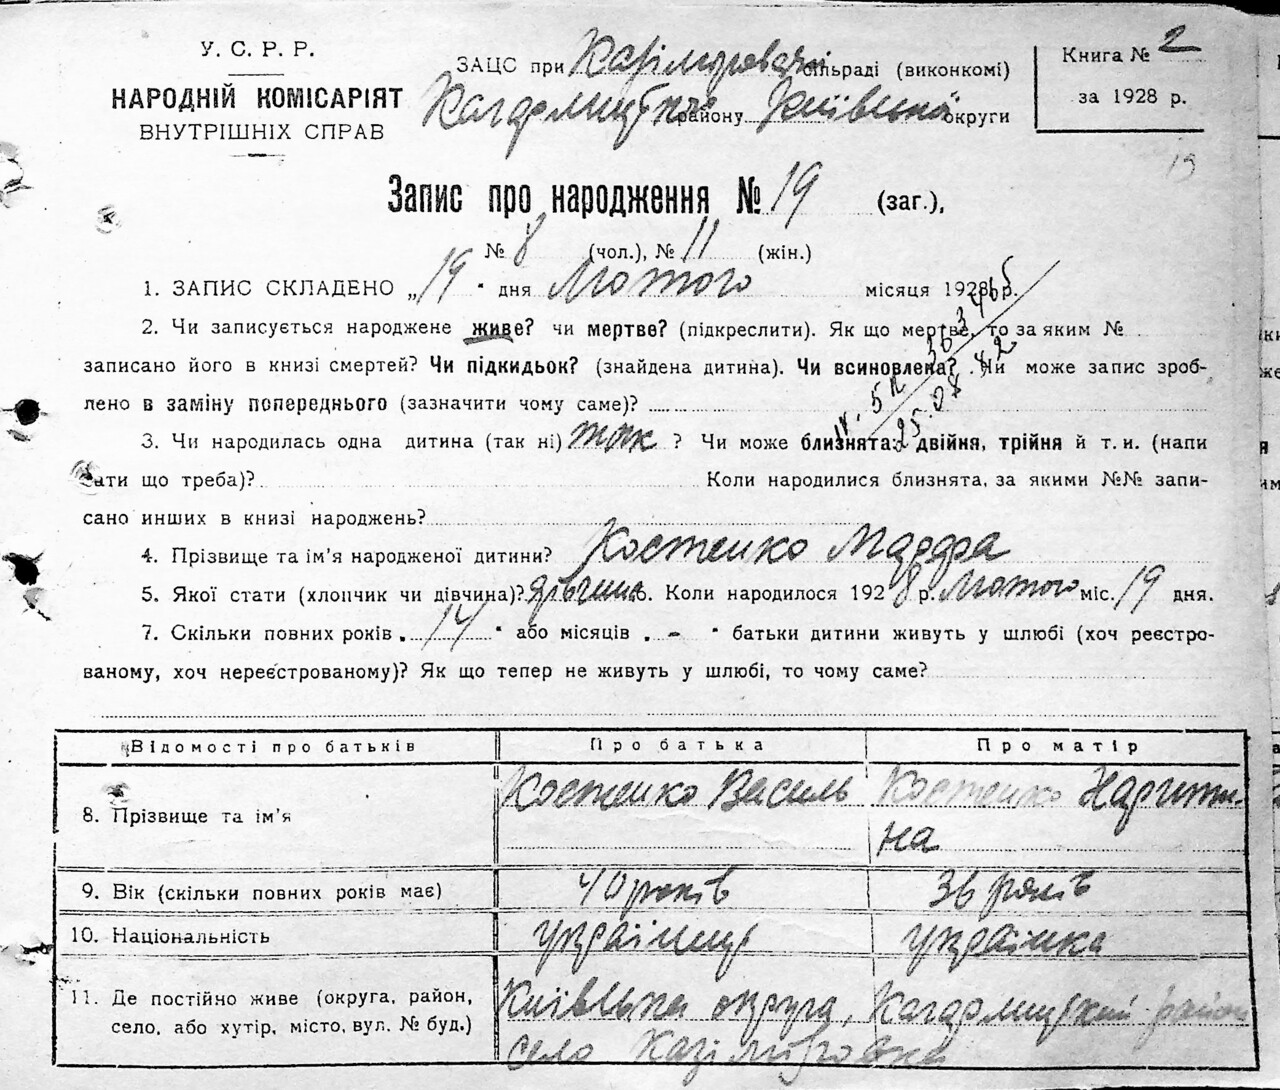 У. С. Р. Р.
НАРОДНІЙ КОМІСАРІЯТ
ВНУТРІШНІХ СПРАВ
ЗАЦС при Казімировській сільраді (виконкомі)
Кагарлицького району Київської округи
Книга № 2
за 1928 р.
19
Запис про народження № 19 (заг.),
№ 8 (чол.), № 11 (жін.)
1. ЗАПИС СКЛАДЕНО „19" дня Лютого місяця 1928 р.
2. Чи записується народжене живе? чи мертве? (підкреслити). Як що мертве, то за яким №
записано його в книзі смертей? Чи підкидьок? (знайдена дитина). Чи всиновлена? Чи може запис зроб-
лено в заміну попереднього (зазначити чому саме)?
3. Чи народилась одна дитина (так ні) так ? Чи може близнята: двійня, трійня й т. и. (напи
сати що треба)? Коли народилися близнята, за якими №№ запи-
сано инших в книзі народжень?
4. Прізвище та ім'я народженої дитини? Костенко Марфа
5. Якої стати (хлопчик чи дівчина)? дівчина 6. Коли народилося 1928 р. Лютого міс. 19 дня.
7. Скільки повних років „14" або місяців „-" батьки дитини живуть у шлюбі (хоч реєстро-
ваному, хоч нереєстрованому)? Як що тепер не живуть у шлюбі, то чому саме?
Відомості про батьків Про батька Про матір
8. Прізвище та ім'я Костенко Василь Костенко Харити-
на
9. Вік (скільки повних років має) 40 років 36 років
10. Національність українец українка
11. Де постійно живе (округа, район,
село, або хутір, місто, вул. № буд.)
Київська округа, Кагарлицкий район
село Казіміровка